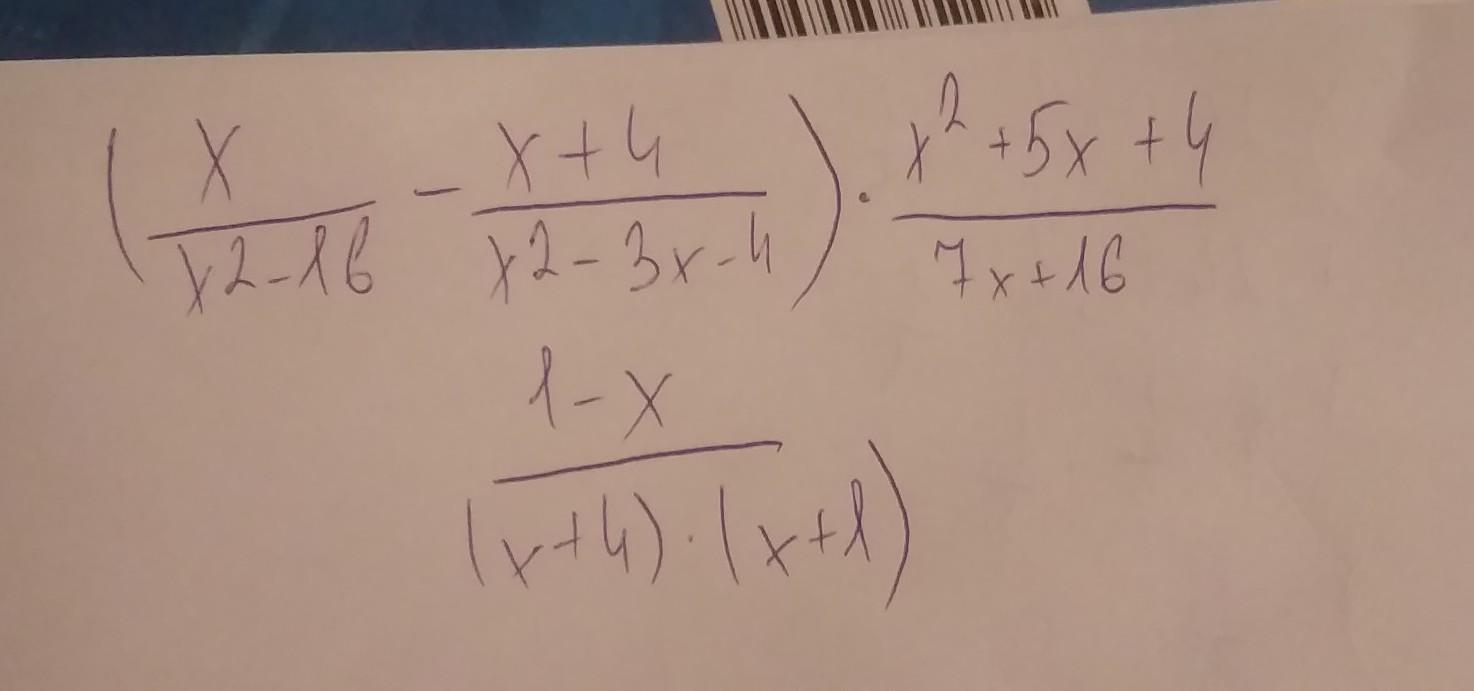 ( x / x2-16 - x+4 / x2-3x-4 ) · x² +5x +4 / 7x+16
1-x / (x+4)·(x+1)